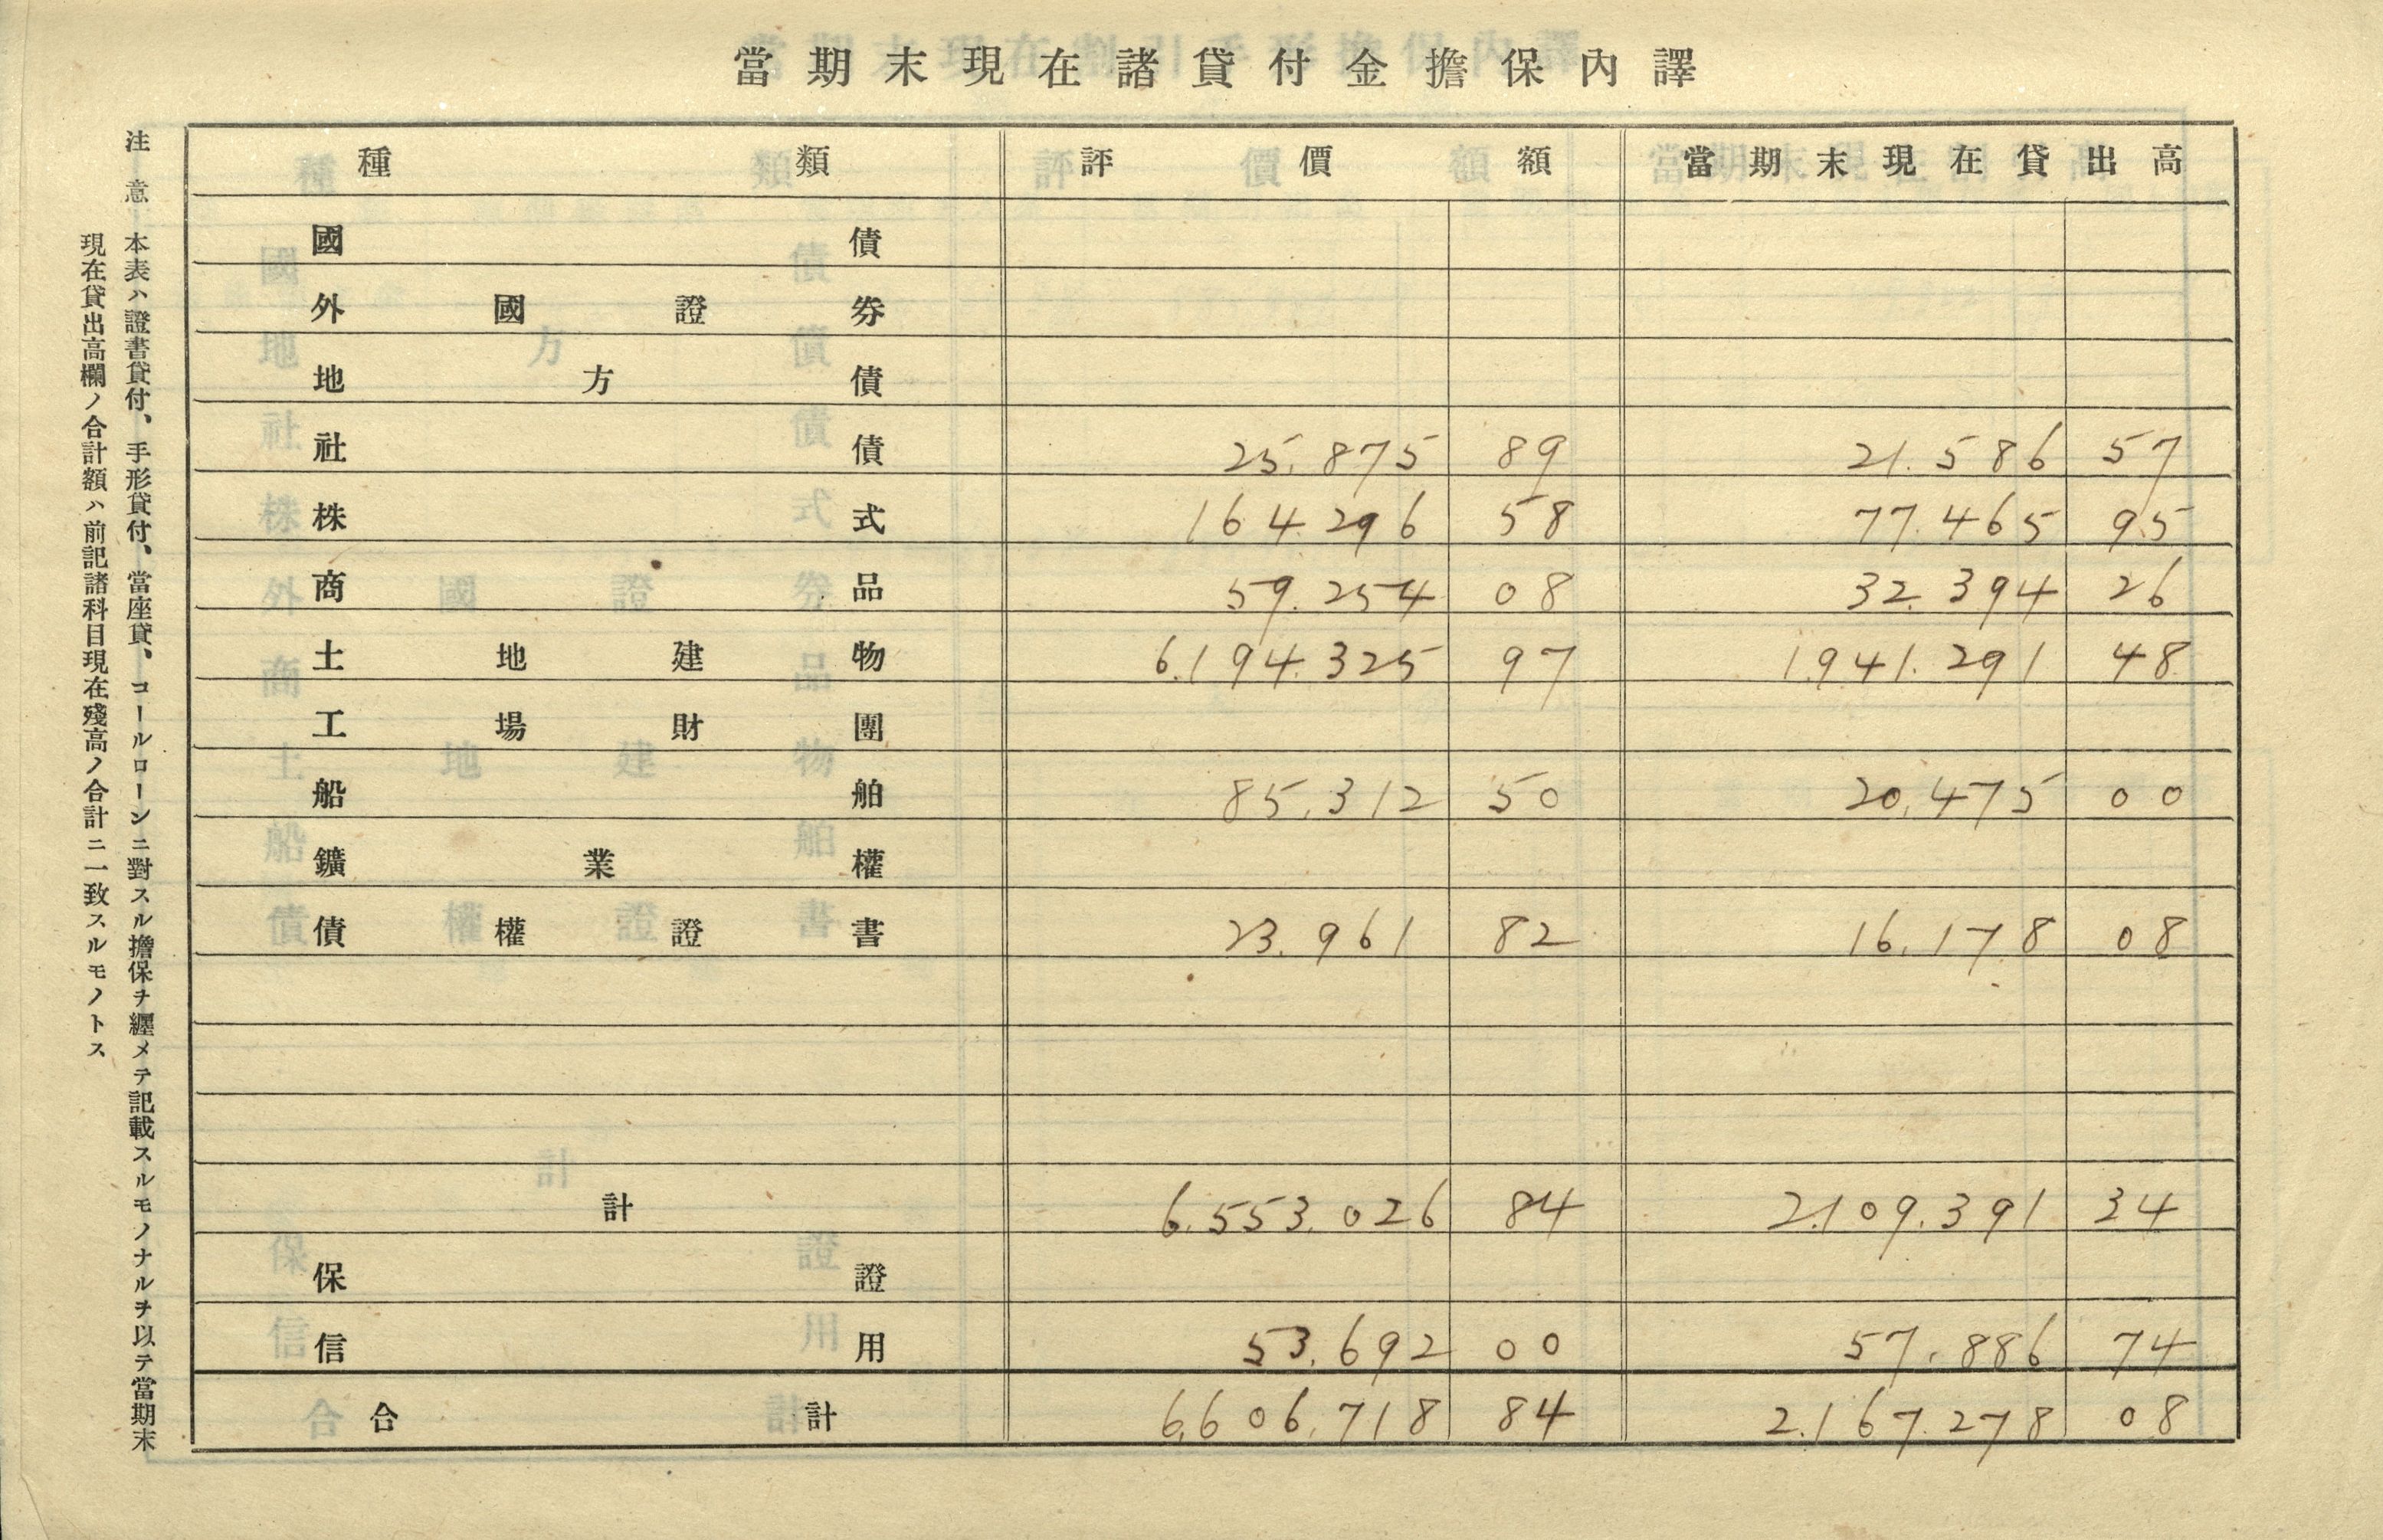 當期末現在諸貸付金擔保內譯
種類 評價額 當期末現在貸出高
國債
外國證券
地方債
社債 25.875 89 21.586 57
株式 164.296 58 77.465 95
商品 59.254 08 32.394 26
土地建物 6.194.325 97 1.941.291 48
工場財團
船舶 85.312 50 20.475 00
鑛業權
債權證書 23.961 82 16.178 08
計 6.553.026 84 2.109.391 34
保證
信用 53.692 00 57.886 74
合計 6.606.718 84 2.167.278 08
注意 本表ハ證書貸付、手形貸付、當座貸、コールローンニ對スル擔保ヲ纒メテ記載スルモノナルヲ以テ當期末
現在貸出高欄ノ合計額ハ前記諸科目現在殘高ノ合計ニ一致スルモノトス